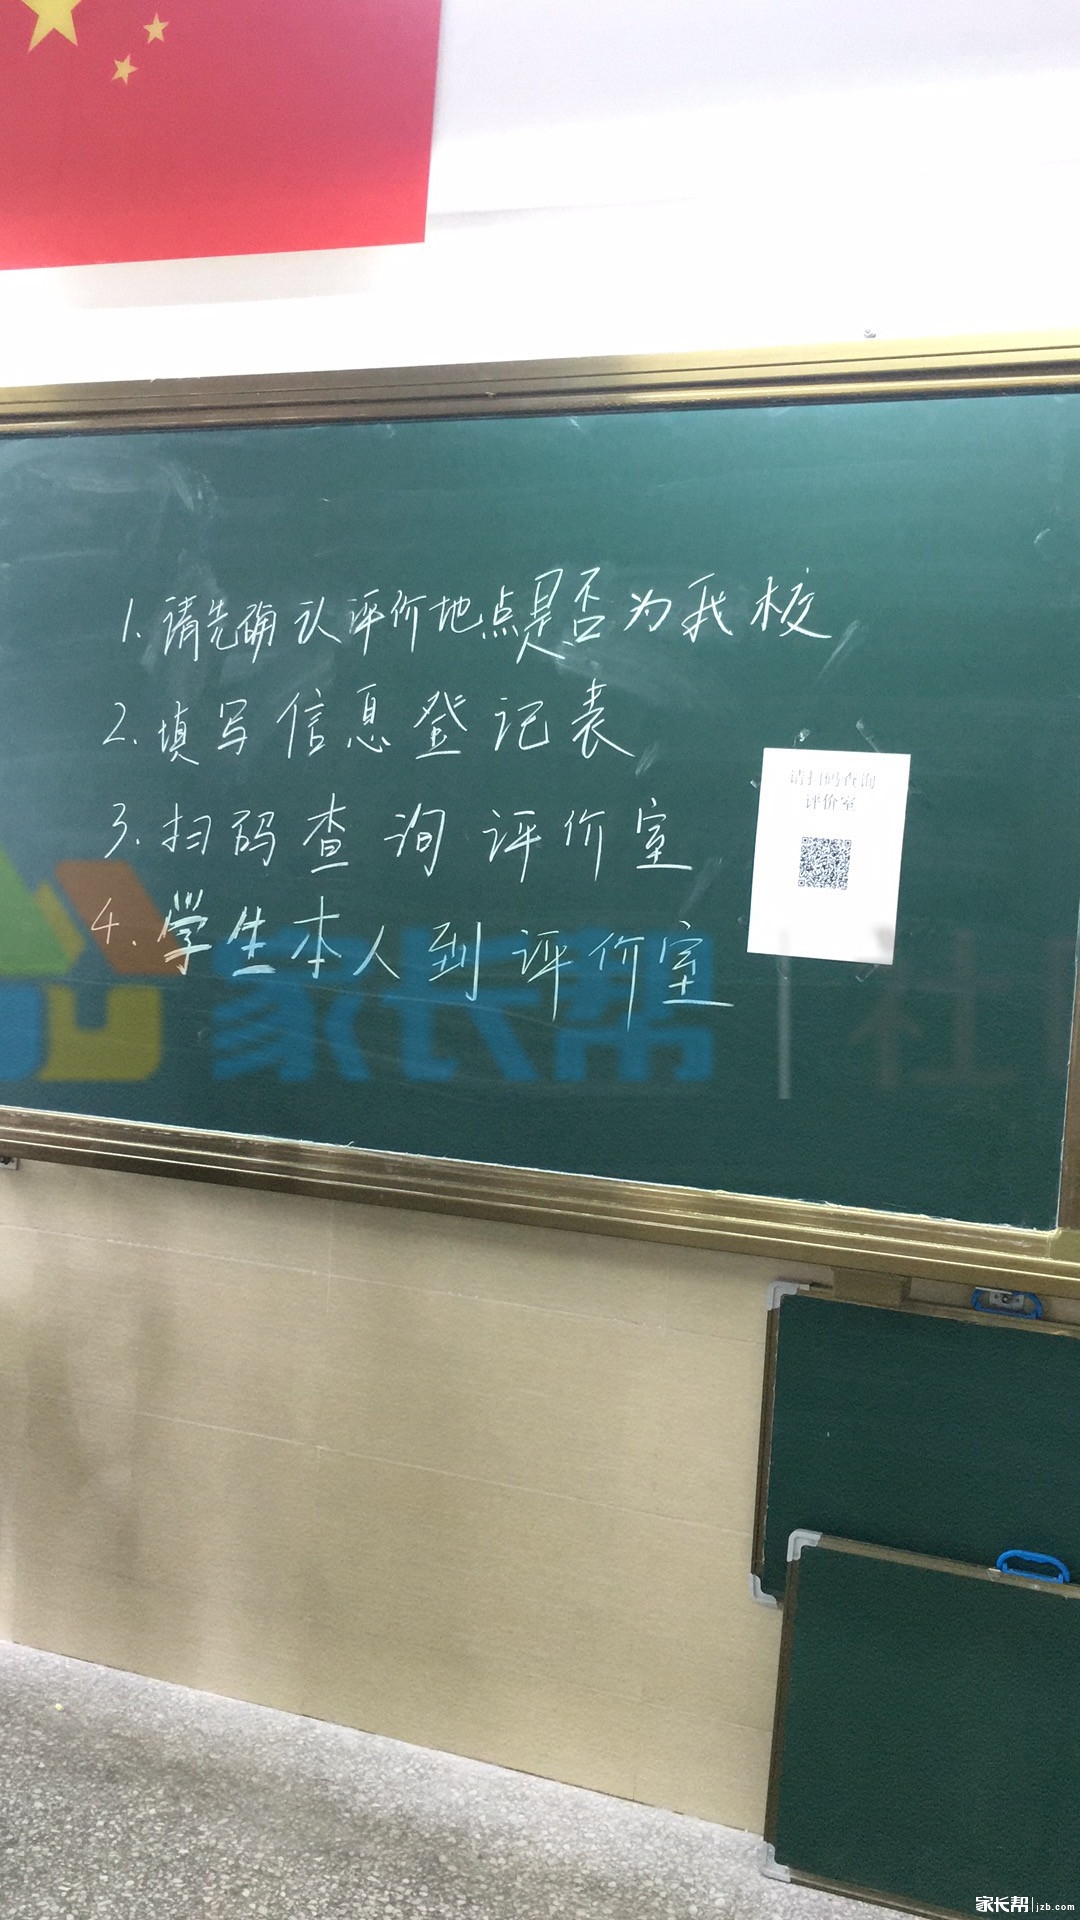 1.请先确认评价地点是否为我校
2.填写信息登记表
3.扫码查询评价室
请扫码查询
评价室
4.学生本人到评价室
家长帮|社
家长帮|jzb.com